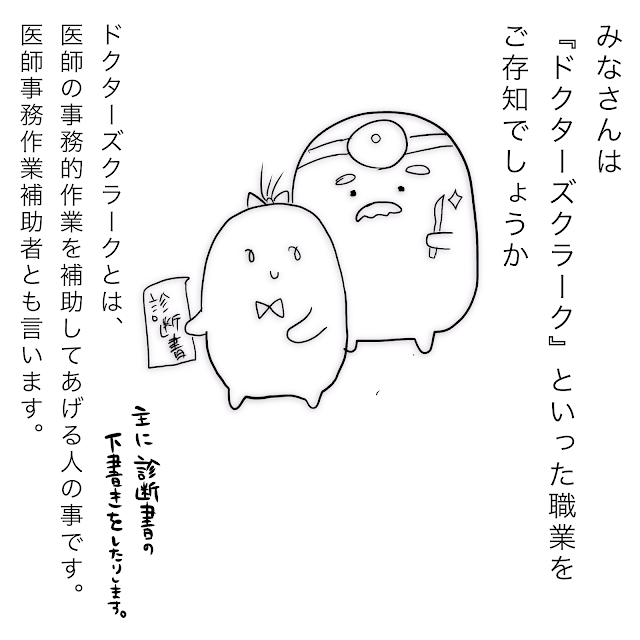 みなさんは
『ドクターズクラーク』といった職業を
ご存知でしょうか
診断書
ドクターズクラークとは、
医師の事務的作業を補助してあげる人の事です。
医師事務作業補助者とも言います。
主に診断書の
下書きをしたりします。